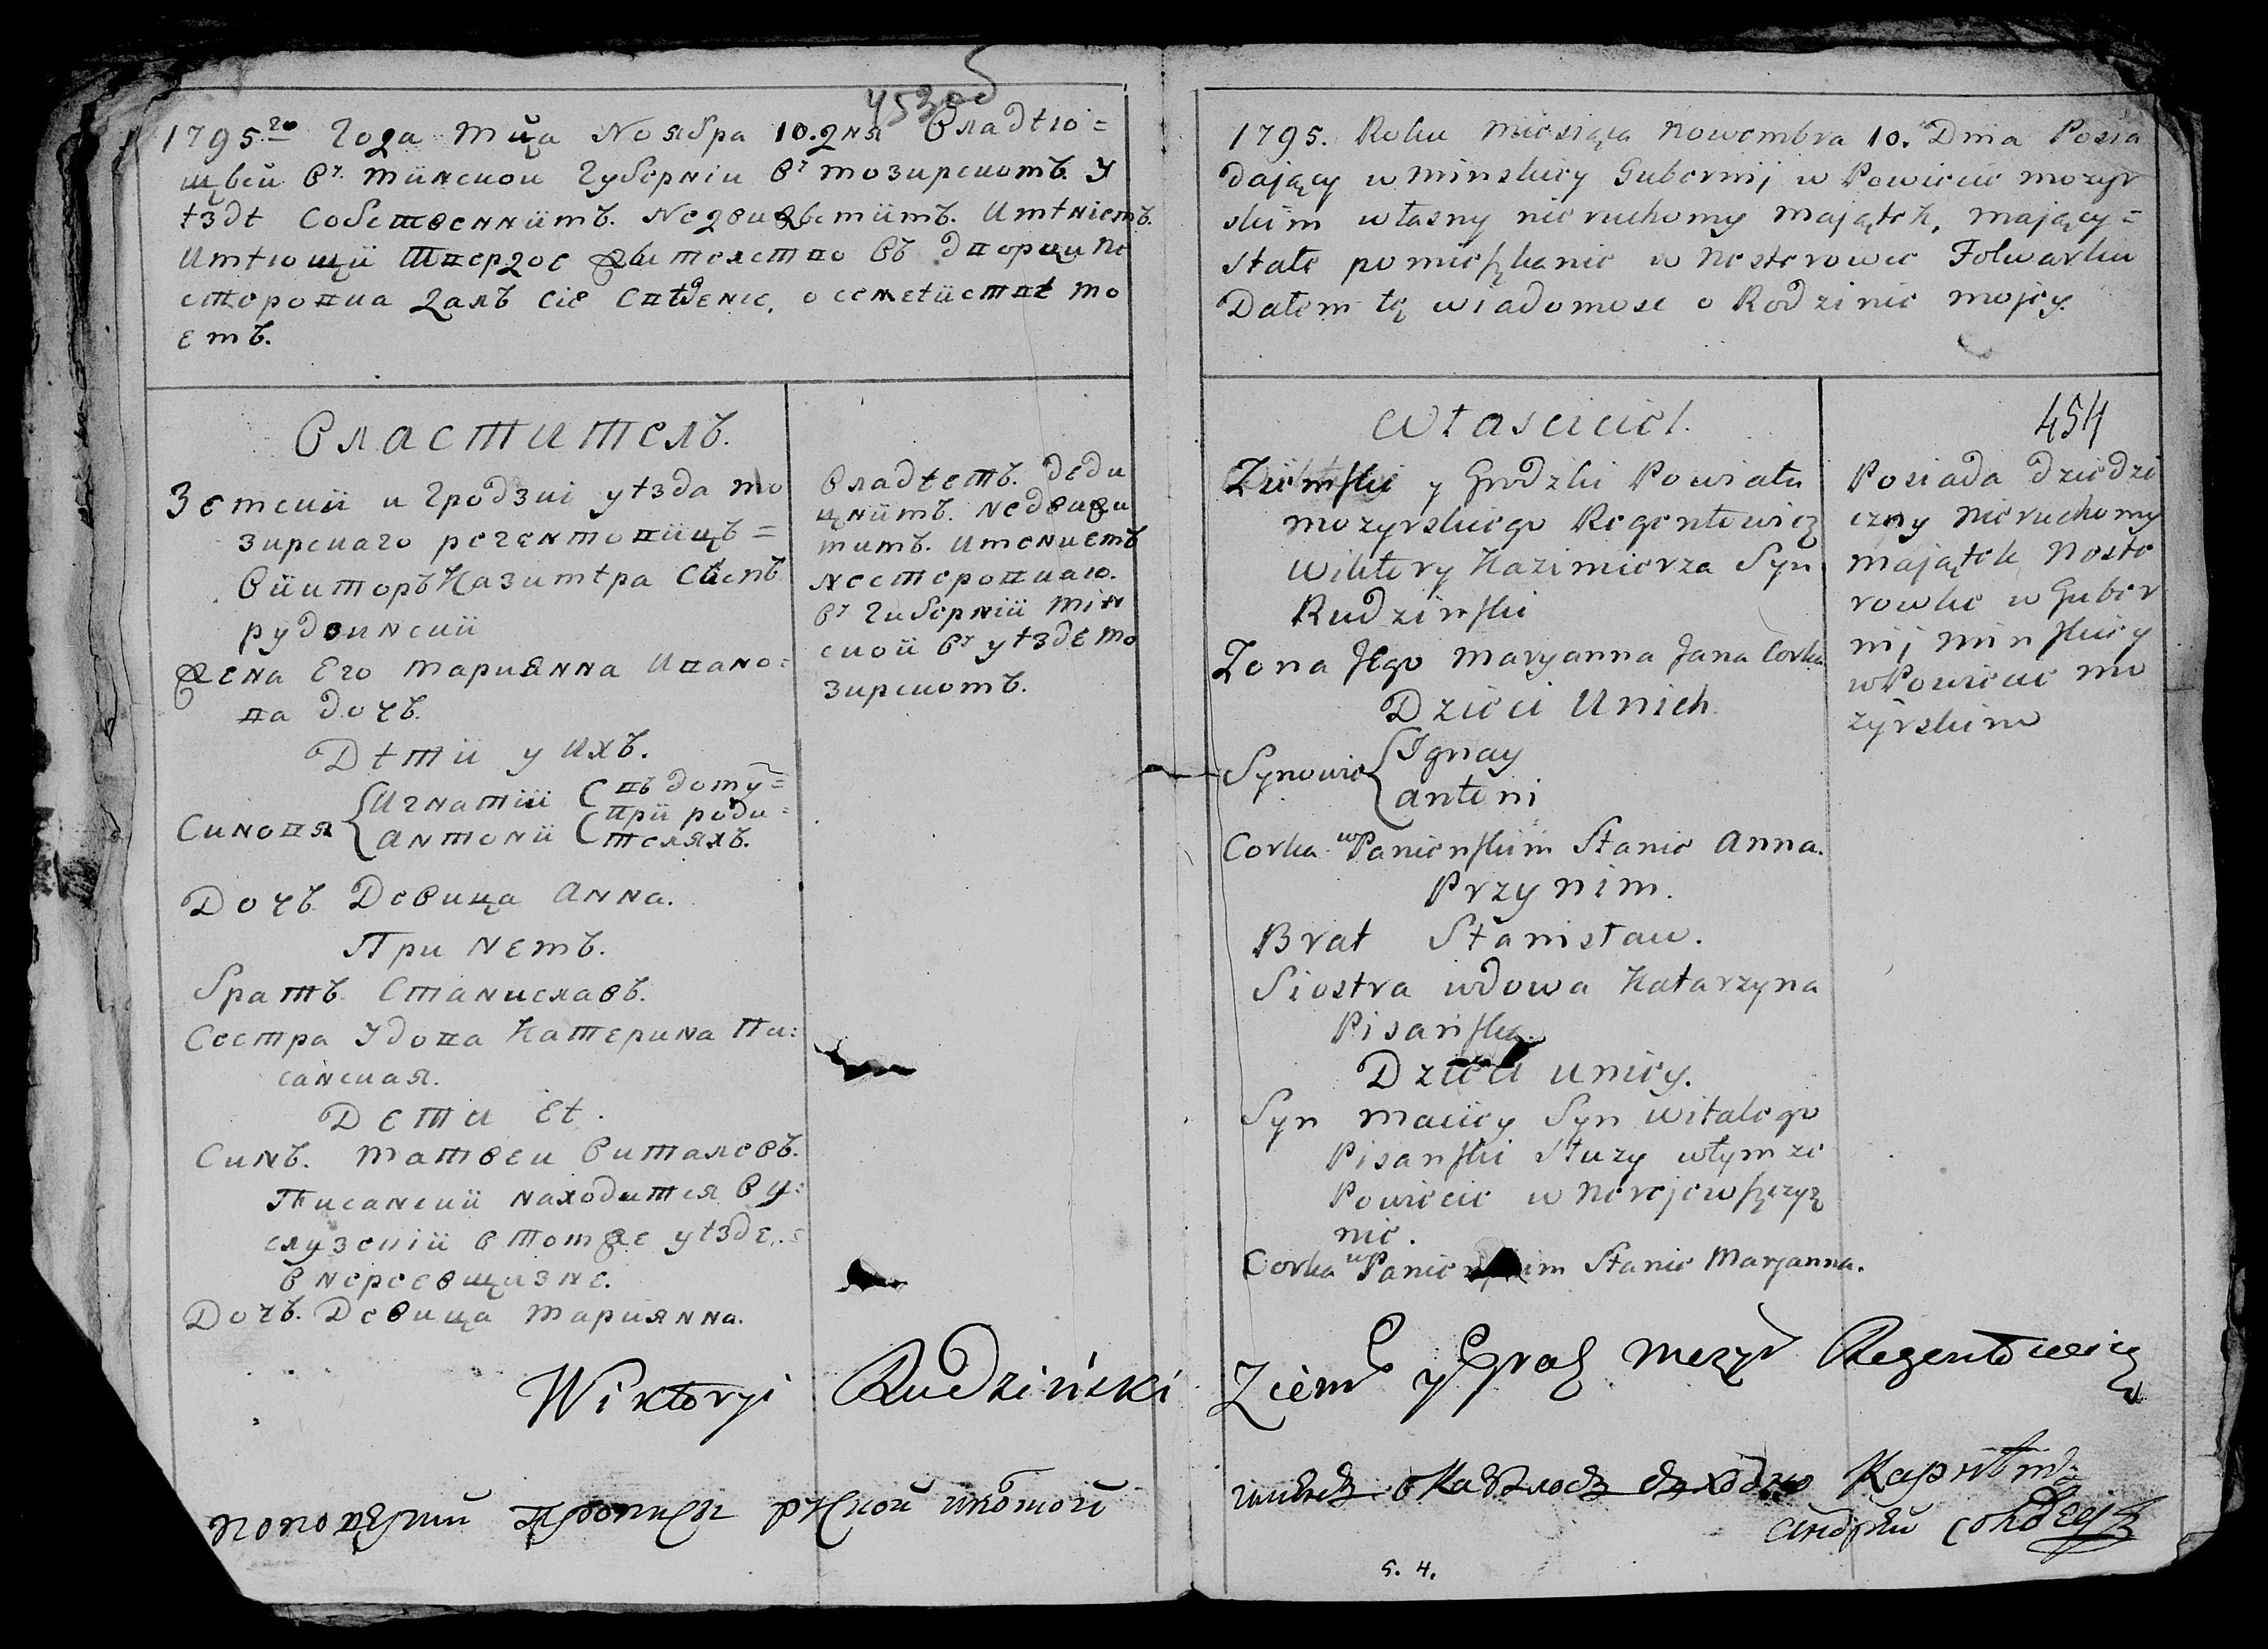 453об
1795.го Года мца Ноября 10. дня Владѣю=
щей въ минской Губерніи въ мозирскомъ У
ѣздѣ Собственнимъ. Недвижемимъ. Имѣніемъ.
Имѣющій Твердое жителство въ дворци Не
сторовка далъ сіе Сведеніе, о семействѣ мо
емъ.
Властитель.
Земскій и Гродзкі уѣзда мо
зирскаго регентовичъ=
Викторъ Казимѣра Синъ
рудзинский
Жена Его мариянна Ивано=
ва дочъ.
Дѣти у ихъ.
Синовя { Игнатій
Антоній
въ дому=
при роди=
теляхъ.
Дочъ Девица Анна.
При немъ.
братъ Станиславъ.
Сестра Удова Катерина Пи:
санская.
Дети Еѣ.
Синъ. матвеи Виталевъ.
Писанский находится в у:
слуз
в томже уѣзде.=
в нереевщизне.
Дочъ. Девица мариянна.
Владѣетъ. деди
чнимъ. недвижи
мимъ. имениемъ
несторовкаю.
въ губерниі мин
ской въ уѣзде мо
зирскомъ.
Wiktoryi Rudziński
1795. Roku miesiąca Nowembra 10. Dnia Posia
dający w minskiey Gubernij w Powiecie mozyr
skim własny nieruchomy majątek, mający=
stałe pomieszkanie w Nesterowce Folwarku
Dałem tę wiadomosc o Rodzinie mojey.
454
Własciciel.
Ziemski y Grodzki Powiatu
mozyrskiego Regentowicz
Wiktory Kazimierza Syn
Rudzinski
Zona Jego maryanna Jana Corka
Dzieci Unich.
Synowie { Ignay
antoni
Corka w Panienskim Stanie Anna.
Przy nim.
Brat Stanisław.
Siostra wdowa Katarzyna
Pisanska.
Dzieci uniey.
Syn maciey Syn witalego
Pisanski służy wtymze
Powiecie w Nerejewszczyz
nie.
Corka w Panienskim Stanie Maryanna.
Posiada dziedzi
czny nieruchomy
majątek Neste
rowke w Guber
nij minskiey
w Powiecie mo
zyrskim
Ziem y Grodz Mozyr Regentowicz
рѣской
Андрей
s. 4.